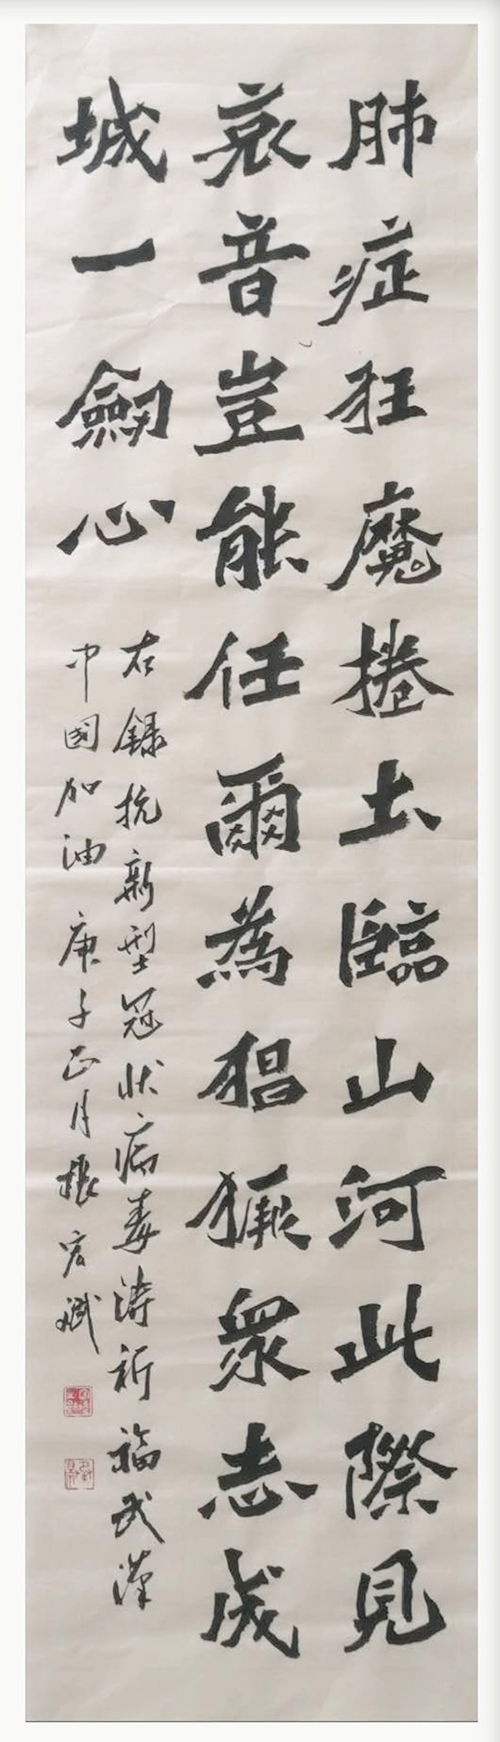 肺症狂魔捲土臨山河此際見
哀音豈能任爾為猖獗衆志成
城一劍心
右録抗新型冠状病毒詩祈福武漢
中國加油庚子正月張宏斌